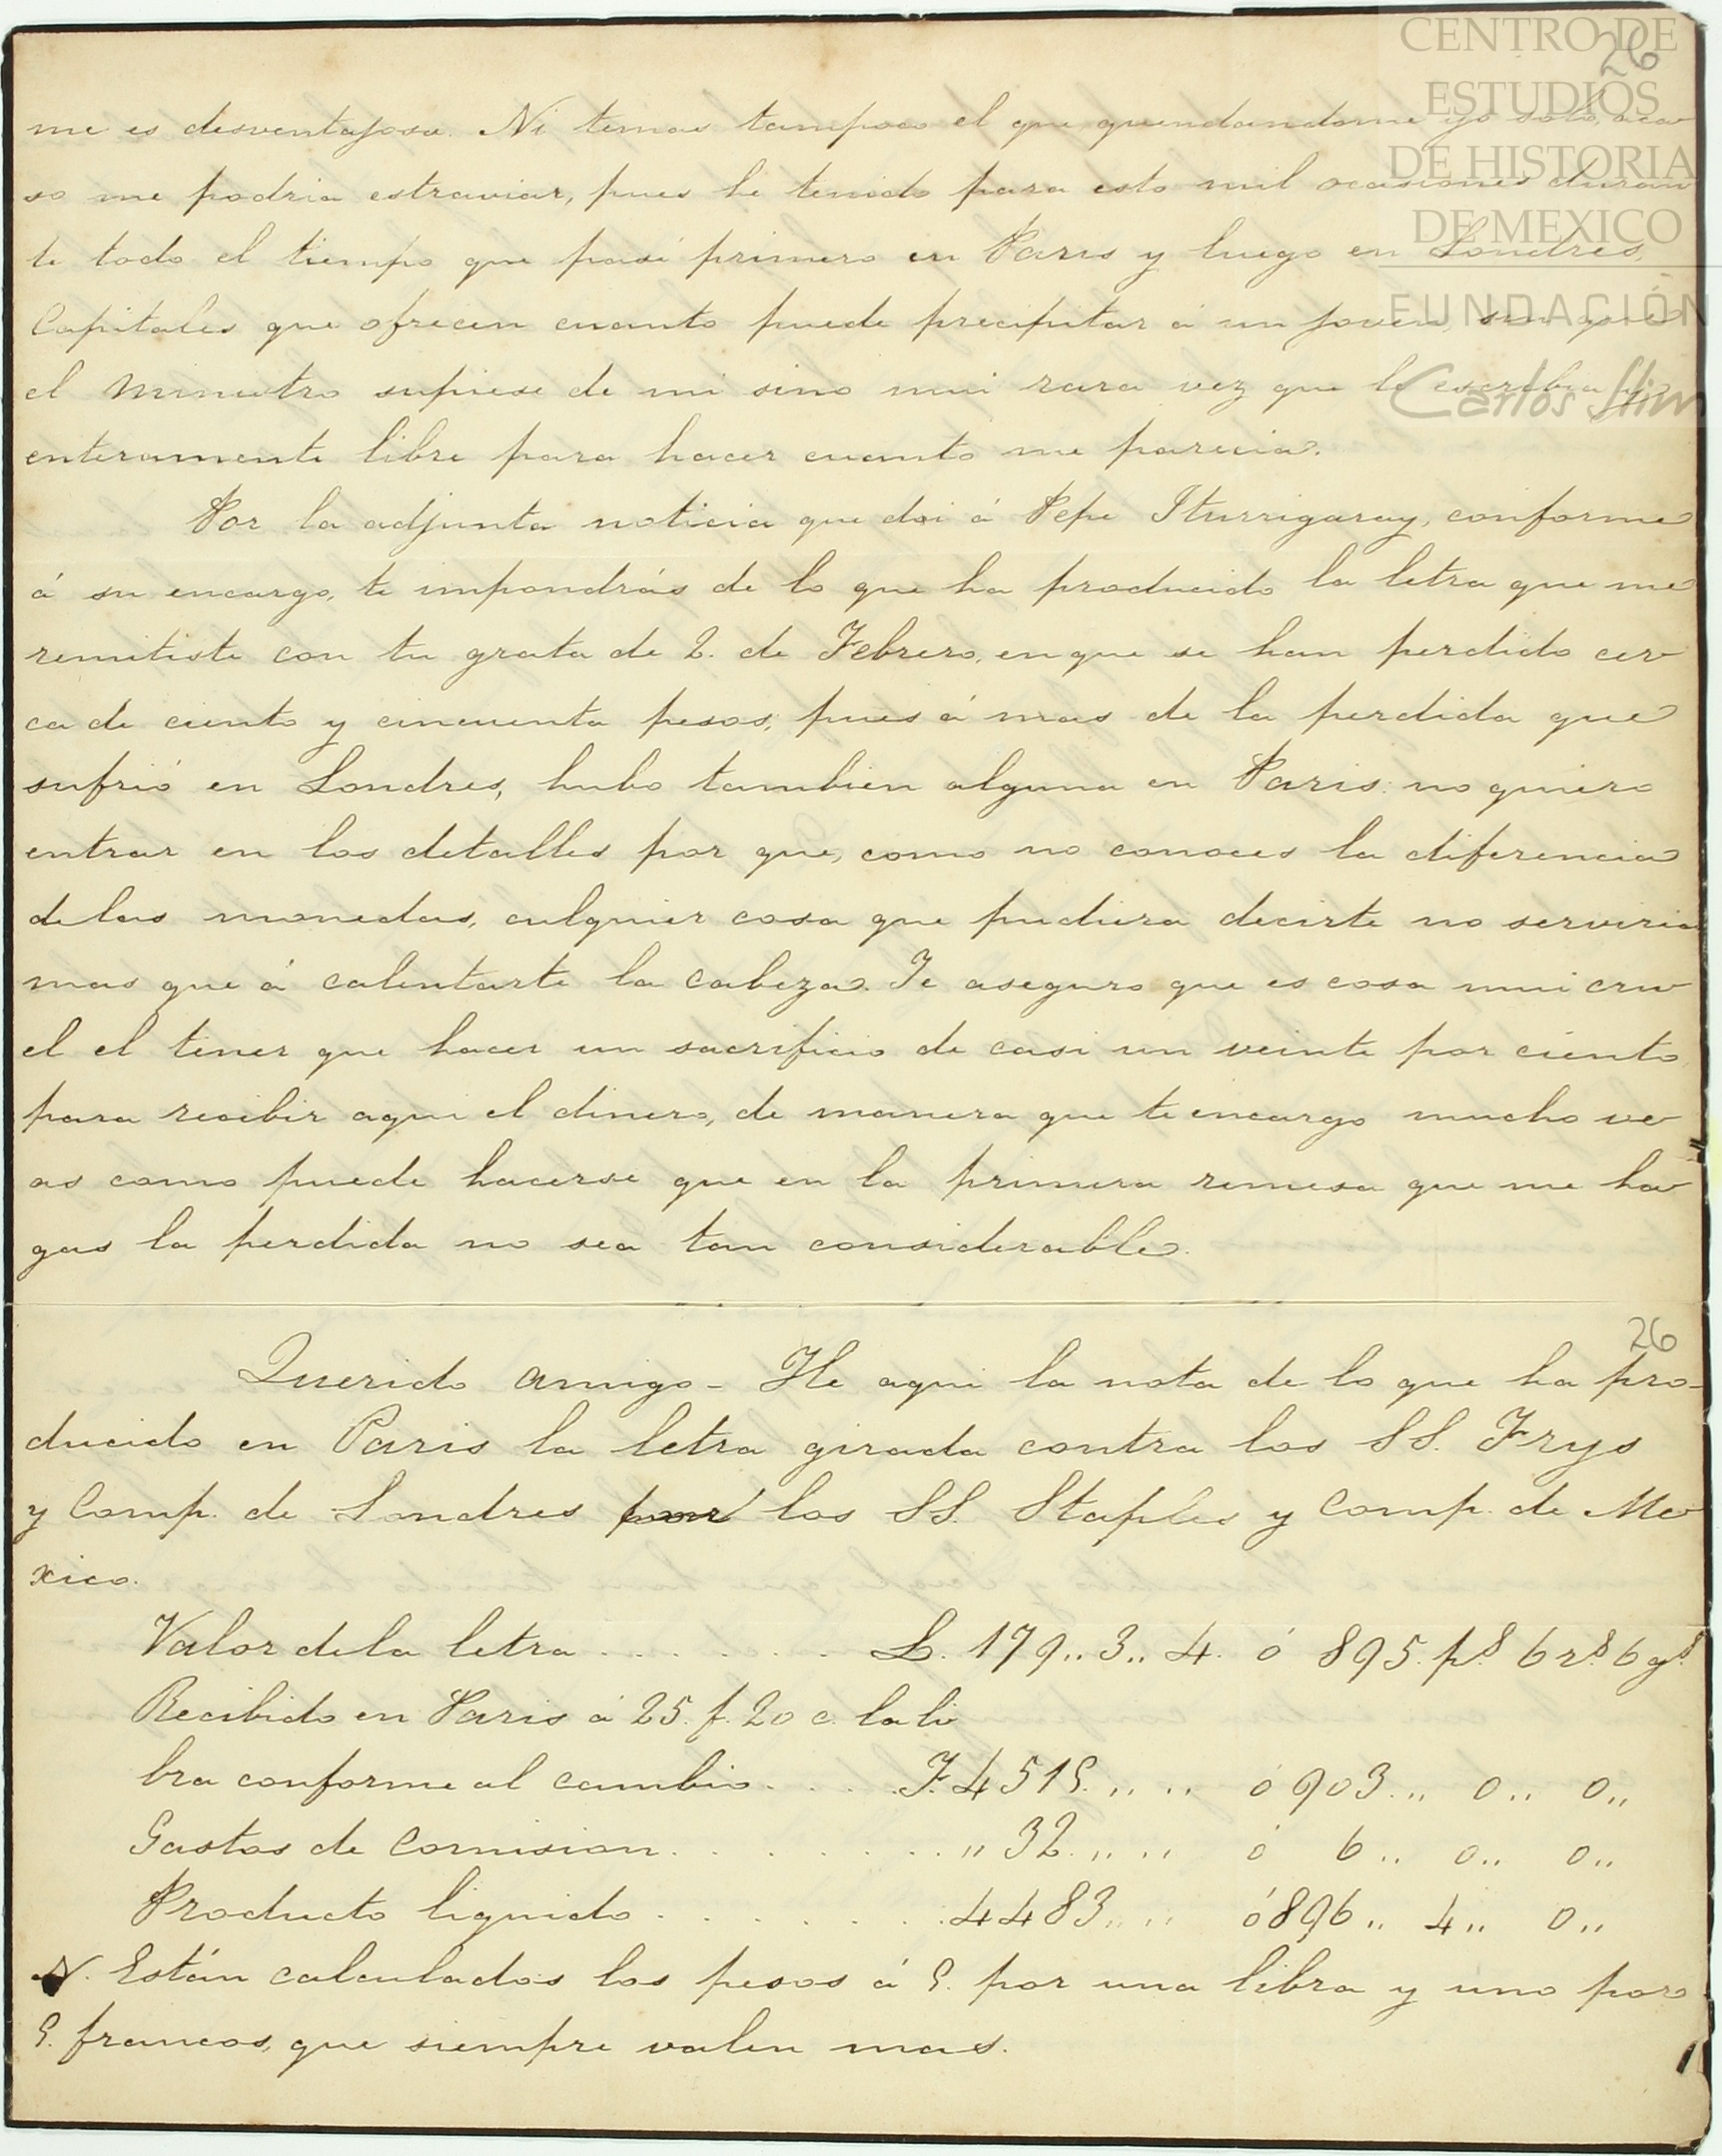 CENTRO DE
ESTUDIOS
DE HISTORIA
DE MEXICO
FUNDACIÓN
Carlos Slim
26
me es desventajosa. Ni temas tampoco el que quendandome yo solo, aca
so me podria estraviar, pues he tenido para esto mil ocasiones duran
te todo el tiempo que pasé primero en Paris y luego en Londres,
Capitales que ofrecen cuanto puede precipitar á un joven, sin que
el Ministro supiese de mi sino mui rara vez que le escribia y
enteramente libre para hacer cuanto me parecia.
Por la adjunta noticia que doi á Pepe Iturrigaray, conforme
á su encargo, te impondrás de lo que ha producido la letra que me
remitiste con tu grata de 2. de Febrero, en que se han perdido cer
ca de ciento y cincuenta pesos; pues á mas de la perdida que
sufrió en Londres, hubo tambien alguna en Paris: no quiero
entrar en los detalles por que, como no conoces la diferencia
de las monedas, culquier cosa que pudiera decirte no serviria
mas que á calentarte la cabeza. Te aseguro que es cosa mui cru
el el tener que hacer un sacrificio de casi un veinte por ciento
para recibir aqui el dinero, de manera que te encargo mucho ve
as como puede hacerse que en la primera remesa que me ha
gas la perdida no sea tan considerable.
26
Querido amigo - He aqui la nota de lo que ha pro-
ducido en Paris la letra girada contra los SS. Frys
y Comp. de Londres por los SS. Staples y Comp. de Me
xico.
Valor de la letra . . . . . . L. 179.. 3.. 4. ó 895. ps 6 rs 6 gs.
Recibido en Paris á 25. f. 20 c. la li
bra conforme al cambio. . . . F. 4515. ,, .. ó 903 .. 0 .. 0 ,,
Gastos de Comision . . . . . . . . ,, 32. ,, .. ó 6 .. 0 .. 0 ..
Producto liquido . . . . . . . . 4483 ,, .. ó 896 .. 4 ,, 0 ..
N. Están calculados los pesos á 5. por una libra y uno por
5. francos, que siempre valen mas.